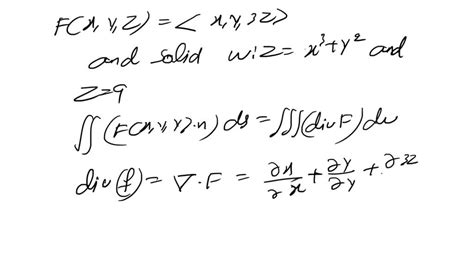 F(x, y, z) = < x, y, 3z>
and solid w: z = x³+y² and
z=9
∬(F(x,y,y).n) ds = ∭(divF) dv
div(f) = ∇.F = ∂x/∂x + ∂y/∂y + ∂3z